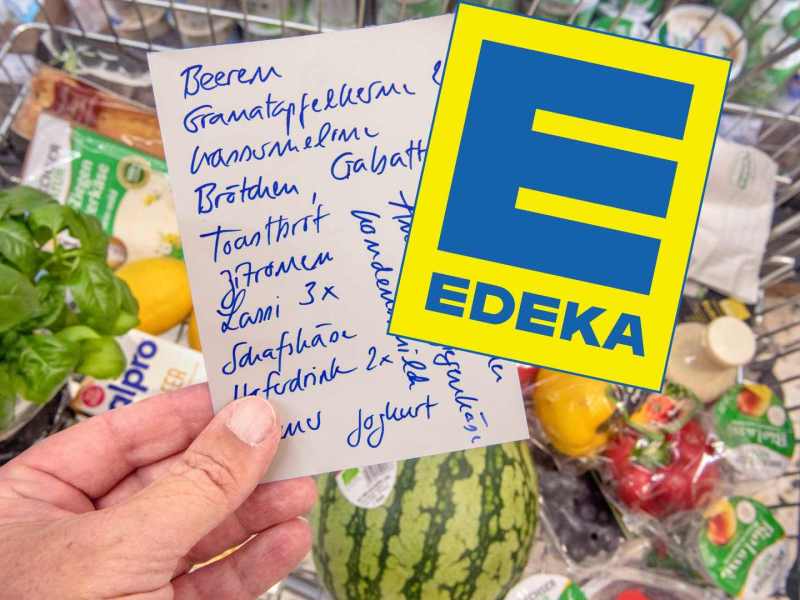 Beeren
Granatapfelkerne 2
Wassermelone
Brötchen, Gabatt
Toastbrot
Zitronen
Lassi 3x
Schafskäse
Haferdrink 2x
Joghurt
E
EDEKA
Ziegen
alpro